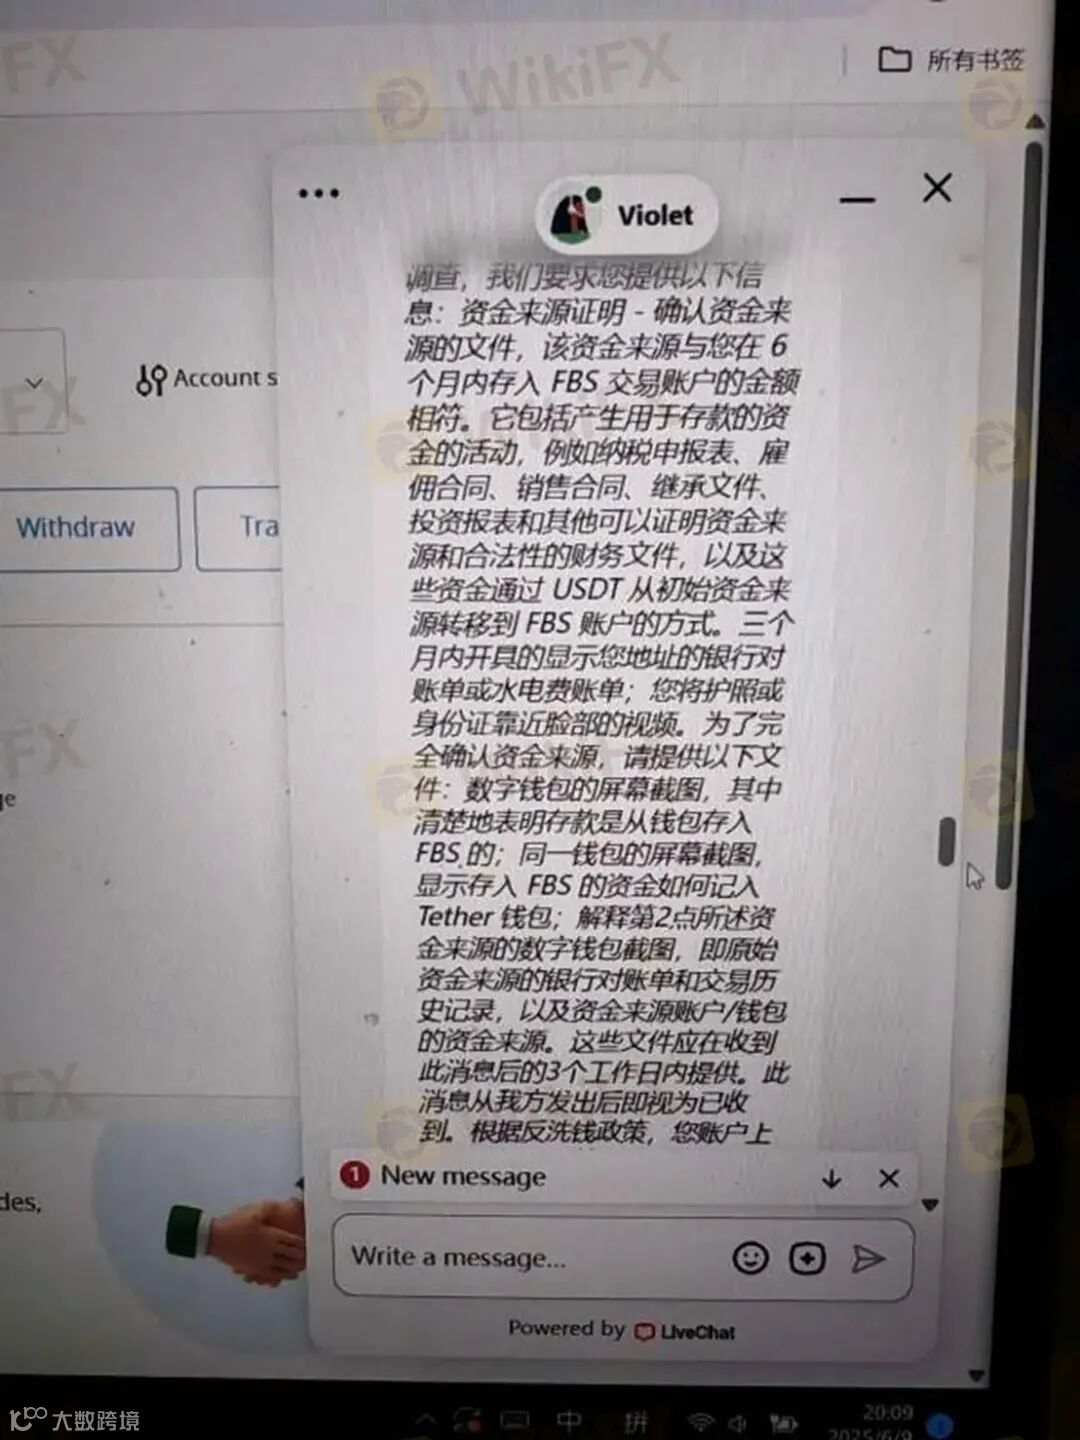 所有书签
WikiFX
Violet
调查，我们要求您提供以下信
息：资金来源证明 - 确认资金来
源的文件，该资金来源与您在 6
个月内存入 FBS 交易账户的金额
相符。它包括产生用于存款的资
金的活动，例如纳税申报表、雇
佣合同、销售合同、继承文件、
投资报表和其他可以证明资金来
源和合法性的财务文件，以及这
些资金通过 USDT 从初始资金来
源转移到 FBS 账户的方式。三个
月内开具的显示您地址的银行对
账单或水电费账单；您将护照或
身份证靠近脸部的视频。为了完
全确认资金来源，请提供以下文
件：数字钱包的屏幕截图，其中
清楚地表明存款是从钱包存入
FBS 的；同一钱包的屏幕截图，
显示存入 FBS 的资金如何记入
Tether 钱包；解释第2点所述资
金来源的数字钱包截图，即原始
资金来源的银行对账单和交易历
史记录，以及资金来源账户/钱包
的资金来源。这些文件应在收到
此消息后的3个工作日内提供。此
消息从我方发出后即视为已收
到。根据反洗钱政策，您账户上
Account s
Withdraw
Tra
des,
1 New message
Write a message...
Powered by LiveChat
大数跨境
中
拼
20:09
2025/6/9